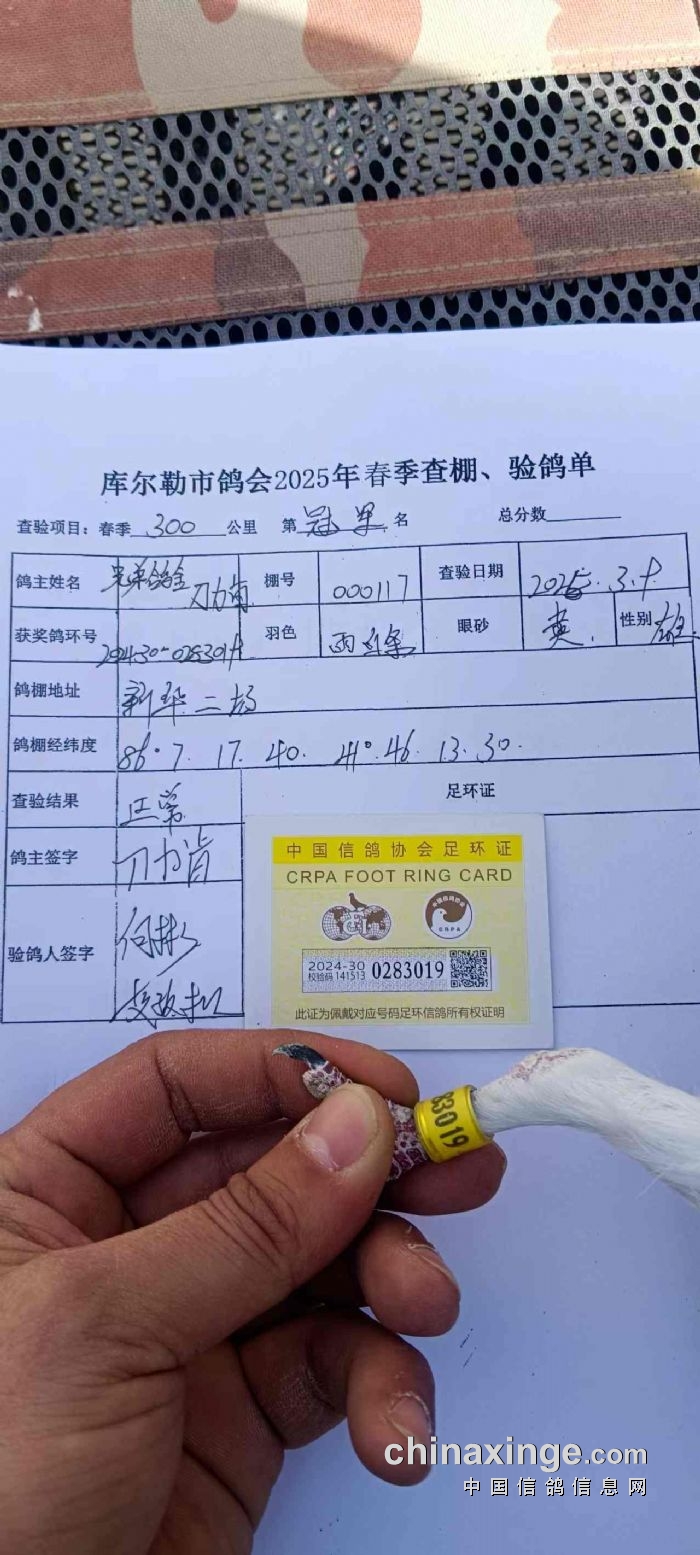 库尔勒市鸽会2025年春季查棚、验鸽单
查验项目：春季 300 公里 第 冠军 名 总分数
鸽主姓名 兄弟鸽舍 刀力肯 棚号 000117 查验日期 2025.3.9
获奖鸽环号 羽色 眼砂 黄. 性别 雄
鸽棚地址 新华二场
鸽棚经纬度 86°7. 17. 40. 41°.46. 13.30.
查验结果 正常 足环证
鸽主签字 刀力肯
验鸽人签字 何彬
中国信鸽协会足环证
CRPA FOOT RING CARD
CRPA
2024-30
校验码 141513
0283019
此证为佩戴对应号码足环信鸽所有权证明
83019
chinaxinge.com
中国信鸽信息网